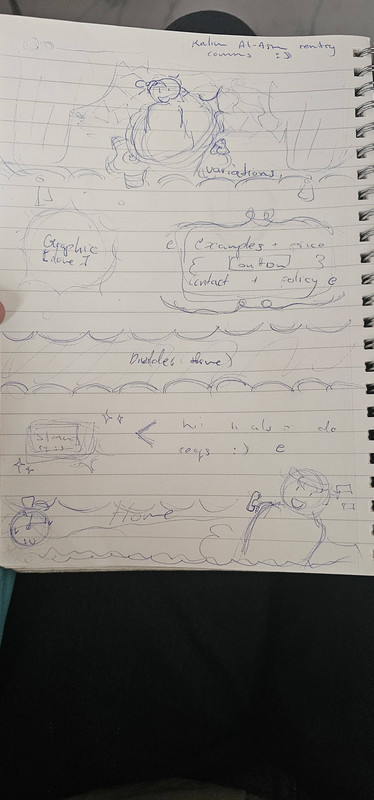 Kalim Al-Asim rentry
comms :3
variations
Graphic
[done]
examples + price
[button]
contact + policy
Divider (done)
hi i also do
reqs :)
Home